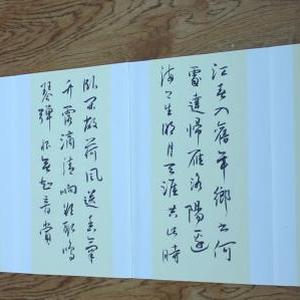 江春入舊年鄉书何
處達歸雁洛陽邊
海上生明月天涯共此時
臥閑敞荷風送香氣
竹露滴清響欲取鳴
琴彈恨無知音賞